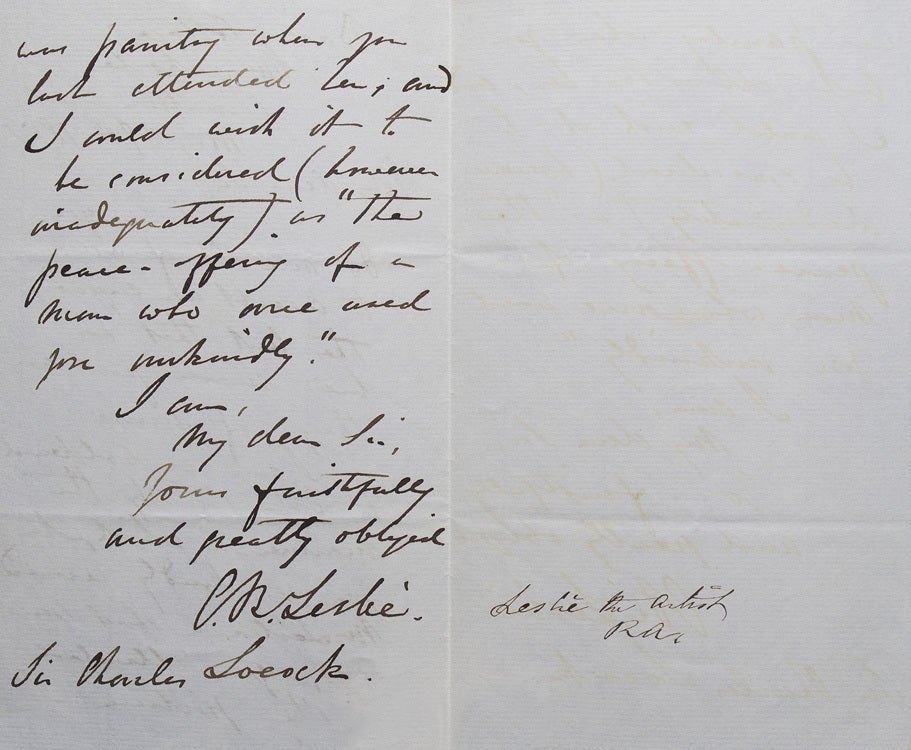 was painting when you
last attended her; and
I could wish it to
be considered (however
inadequately) as "the
peace-offering of a
man who once used
you unkindly."
I am,
My dear Sir,
Yours faithfully
and greatly obliged
C. R. Leslie.
Sir Charles Locock.
Leslie the Artist
R.A.